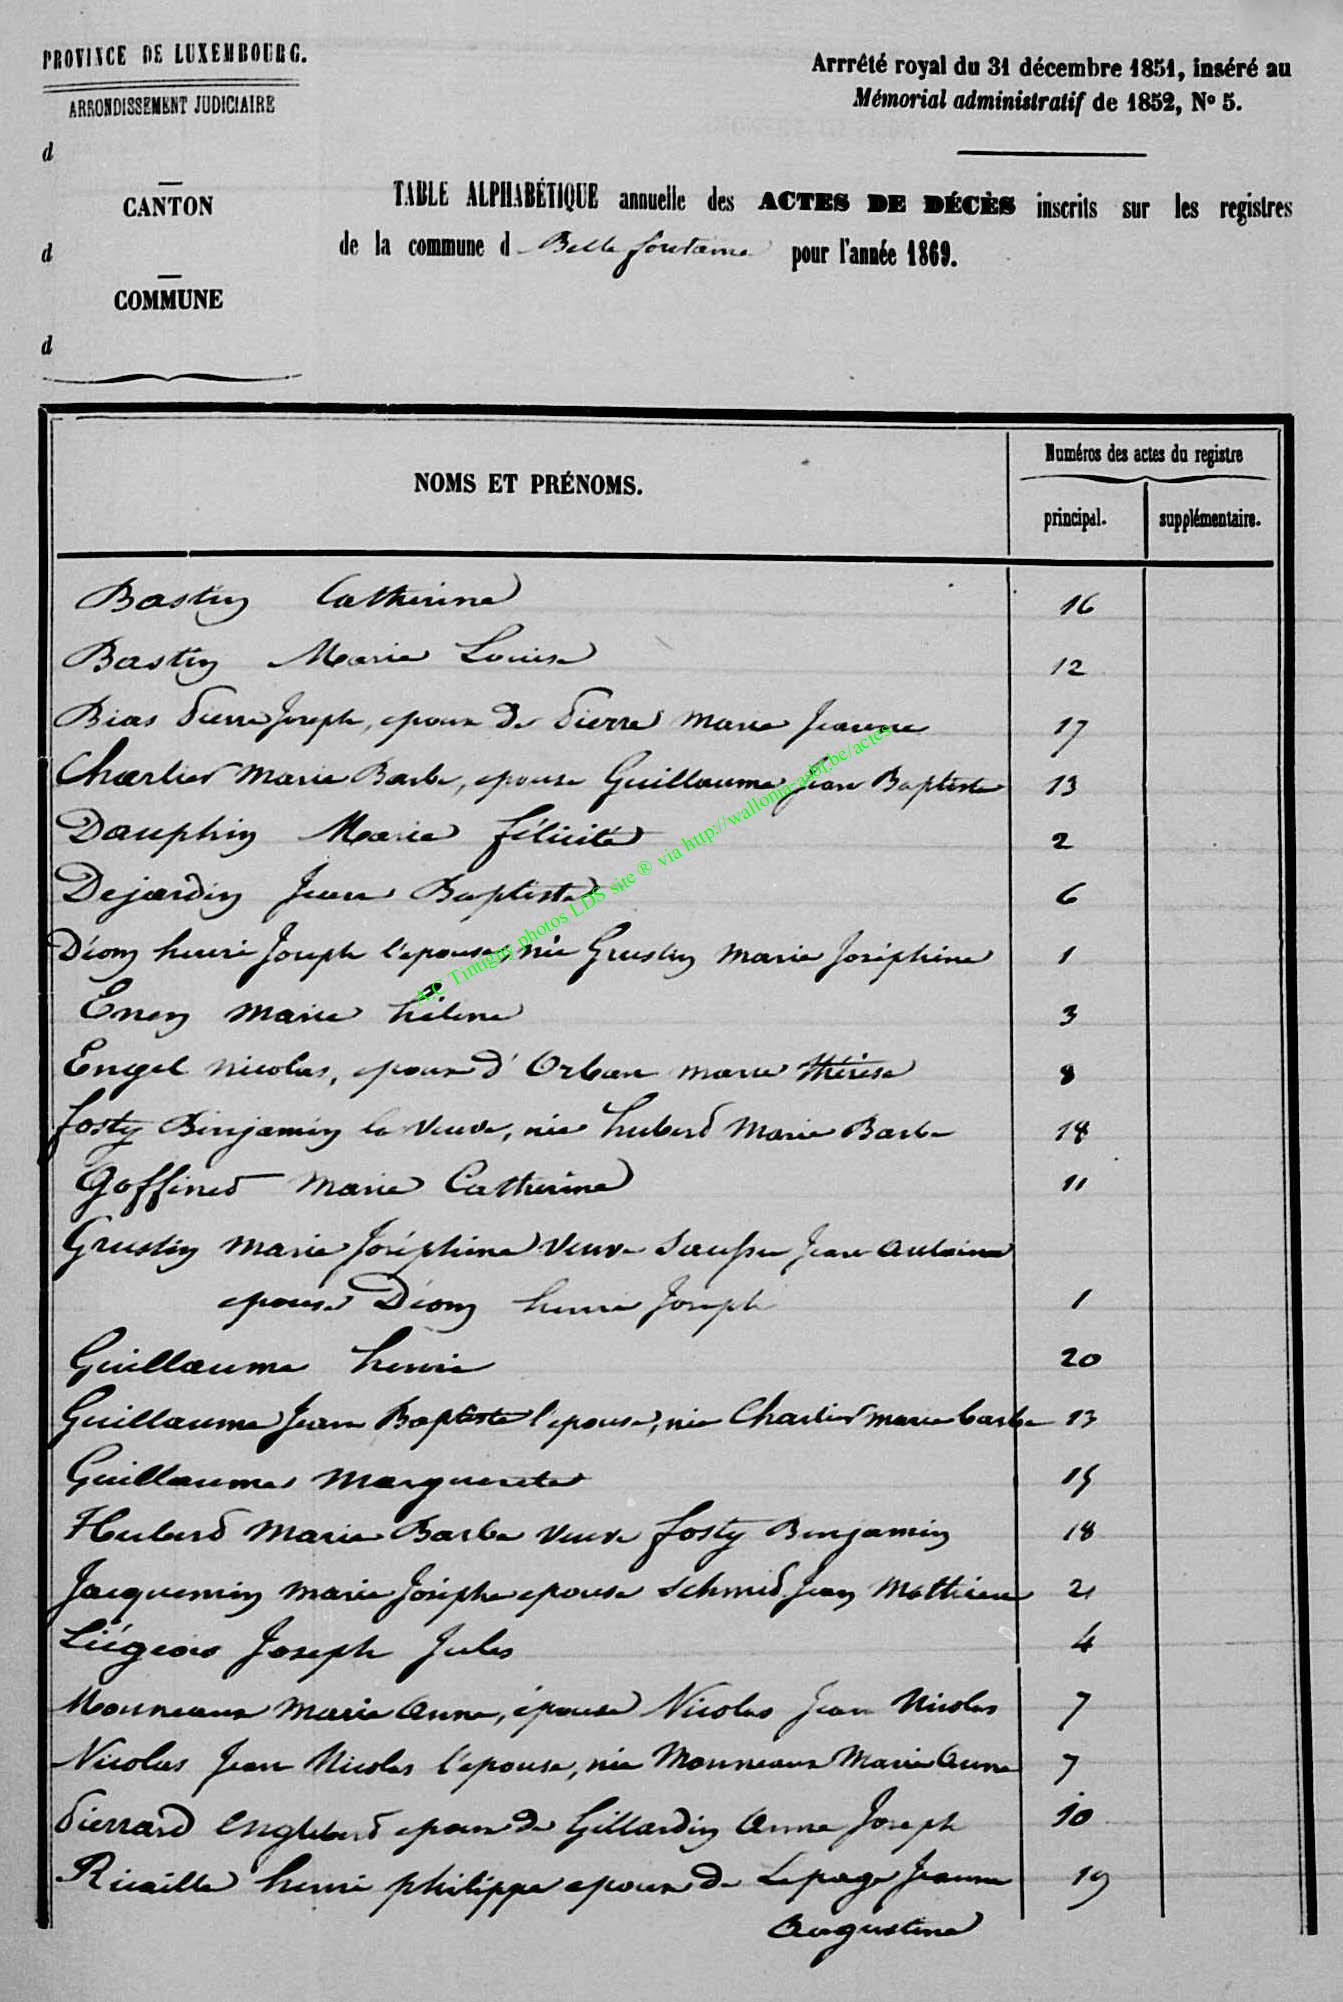 PROVINCE DE LUXEMBOURG.
ARRONDISSEMENT JUDICIAIRE
d
CANTON
d
COMMUNE
d
Arrrêté royal du 31 décembre 1851, inséré au
Mémorial administratif de 1852, Nº 5.
TABLE ALPHABÉTIQUE annuelle des ACTES DE DÉCÈS inscrits sur les registres
de la commune d Bellefontaine pour l'année 1869.
NOMS ET PRÉNOMS.
Numéros des actes du registre
principal. supplémentaire.
Bastin Catherine 16
Bastin Marie Louise 12
Bias Pierre Joseph, epoux de Pierre Marie Jeanne 17
Charlier Marie Barbe, epouse Guillaume Jean Baptiste 13
Dauphin Marie félicité 2
Dejardin Jean Baptiste 6
Déom henri Joseph l'epouse, née Grustin Marie Joséphine 1
Eneon marie hélène 3
Engel nicolas, epoux d'Orban marie thérèse 8
fosty Binjamin la veuve, née hubert Marie Barbe 18
Goffinet Marie Catherine 11
Grustin Marie Joséphine veuve Jean Antoine
epouse Déom henri Joseph 1
Guillaume henri 20
Guillaume Jean Baptiste l'epouse, née Charlier marie barbe 13
Guillaume Marguerite 15
Hubert Marie Barbe veuve fosty Benjamin 18
Jacquemin marie Josèphe epouse Schmid Jean Mathieu 21
Liégeois Joseph Jules 4
Monneaux Marie Anne, épouse Nicolas Jean Nicolas 7
Nicolas Jean Nicolas l'epouse, née Monneaux Marie Anne 7
Pierrard Englebert epoux de Gillardin Anne Joseph 10
Ricaille henri philippe epoux de Lepage Jeanne 19
Augustine
A.C Tintigny photos LDS site ® via http://wallonia-asbl.be/actes